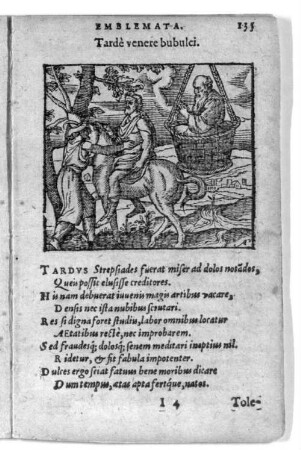 EMBLEMATA. 135
Tardè venere bubulci.
TARDVS Strepsiades fuerat miser ad dolos noscēdos,
Queis possit elusisse creditores.
Hunam debuerat iuvenis magis artibus vacare,
Densis nec ista nubibus scrutari.
Res si digna foret studiu, labor omnibus locatur
AEtatibus rectè, nec improbarem.
Sed fraudesq; dolosq; senem meditari ineptius nil.
Ridetur, & fit fabula impotenter.
Dulces ergo sciat fatuus bene moribus dicare
Dum tempus, ætas apta fertque, natos.
I 4 Tole-